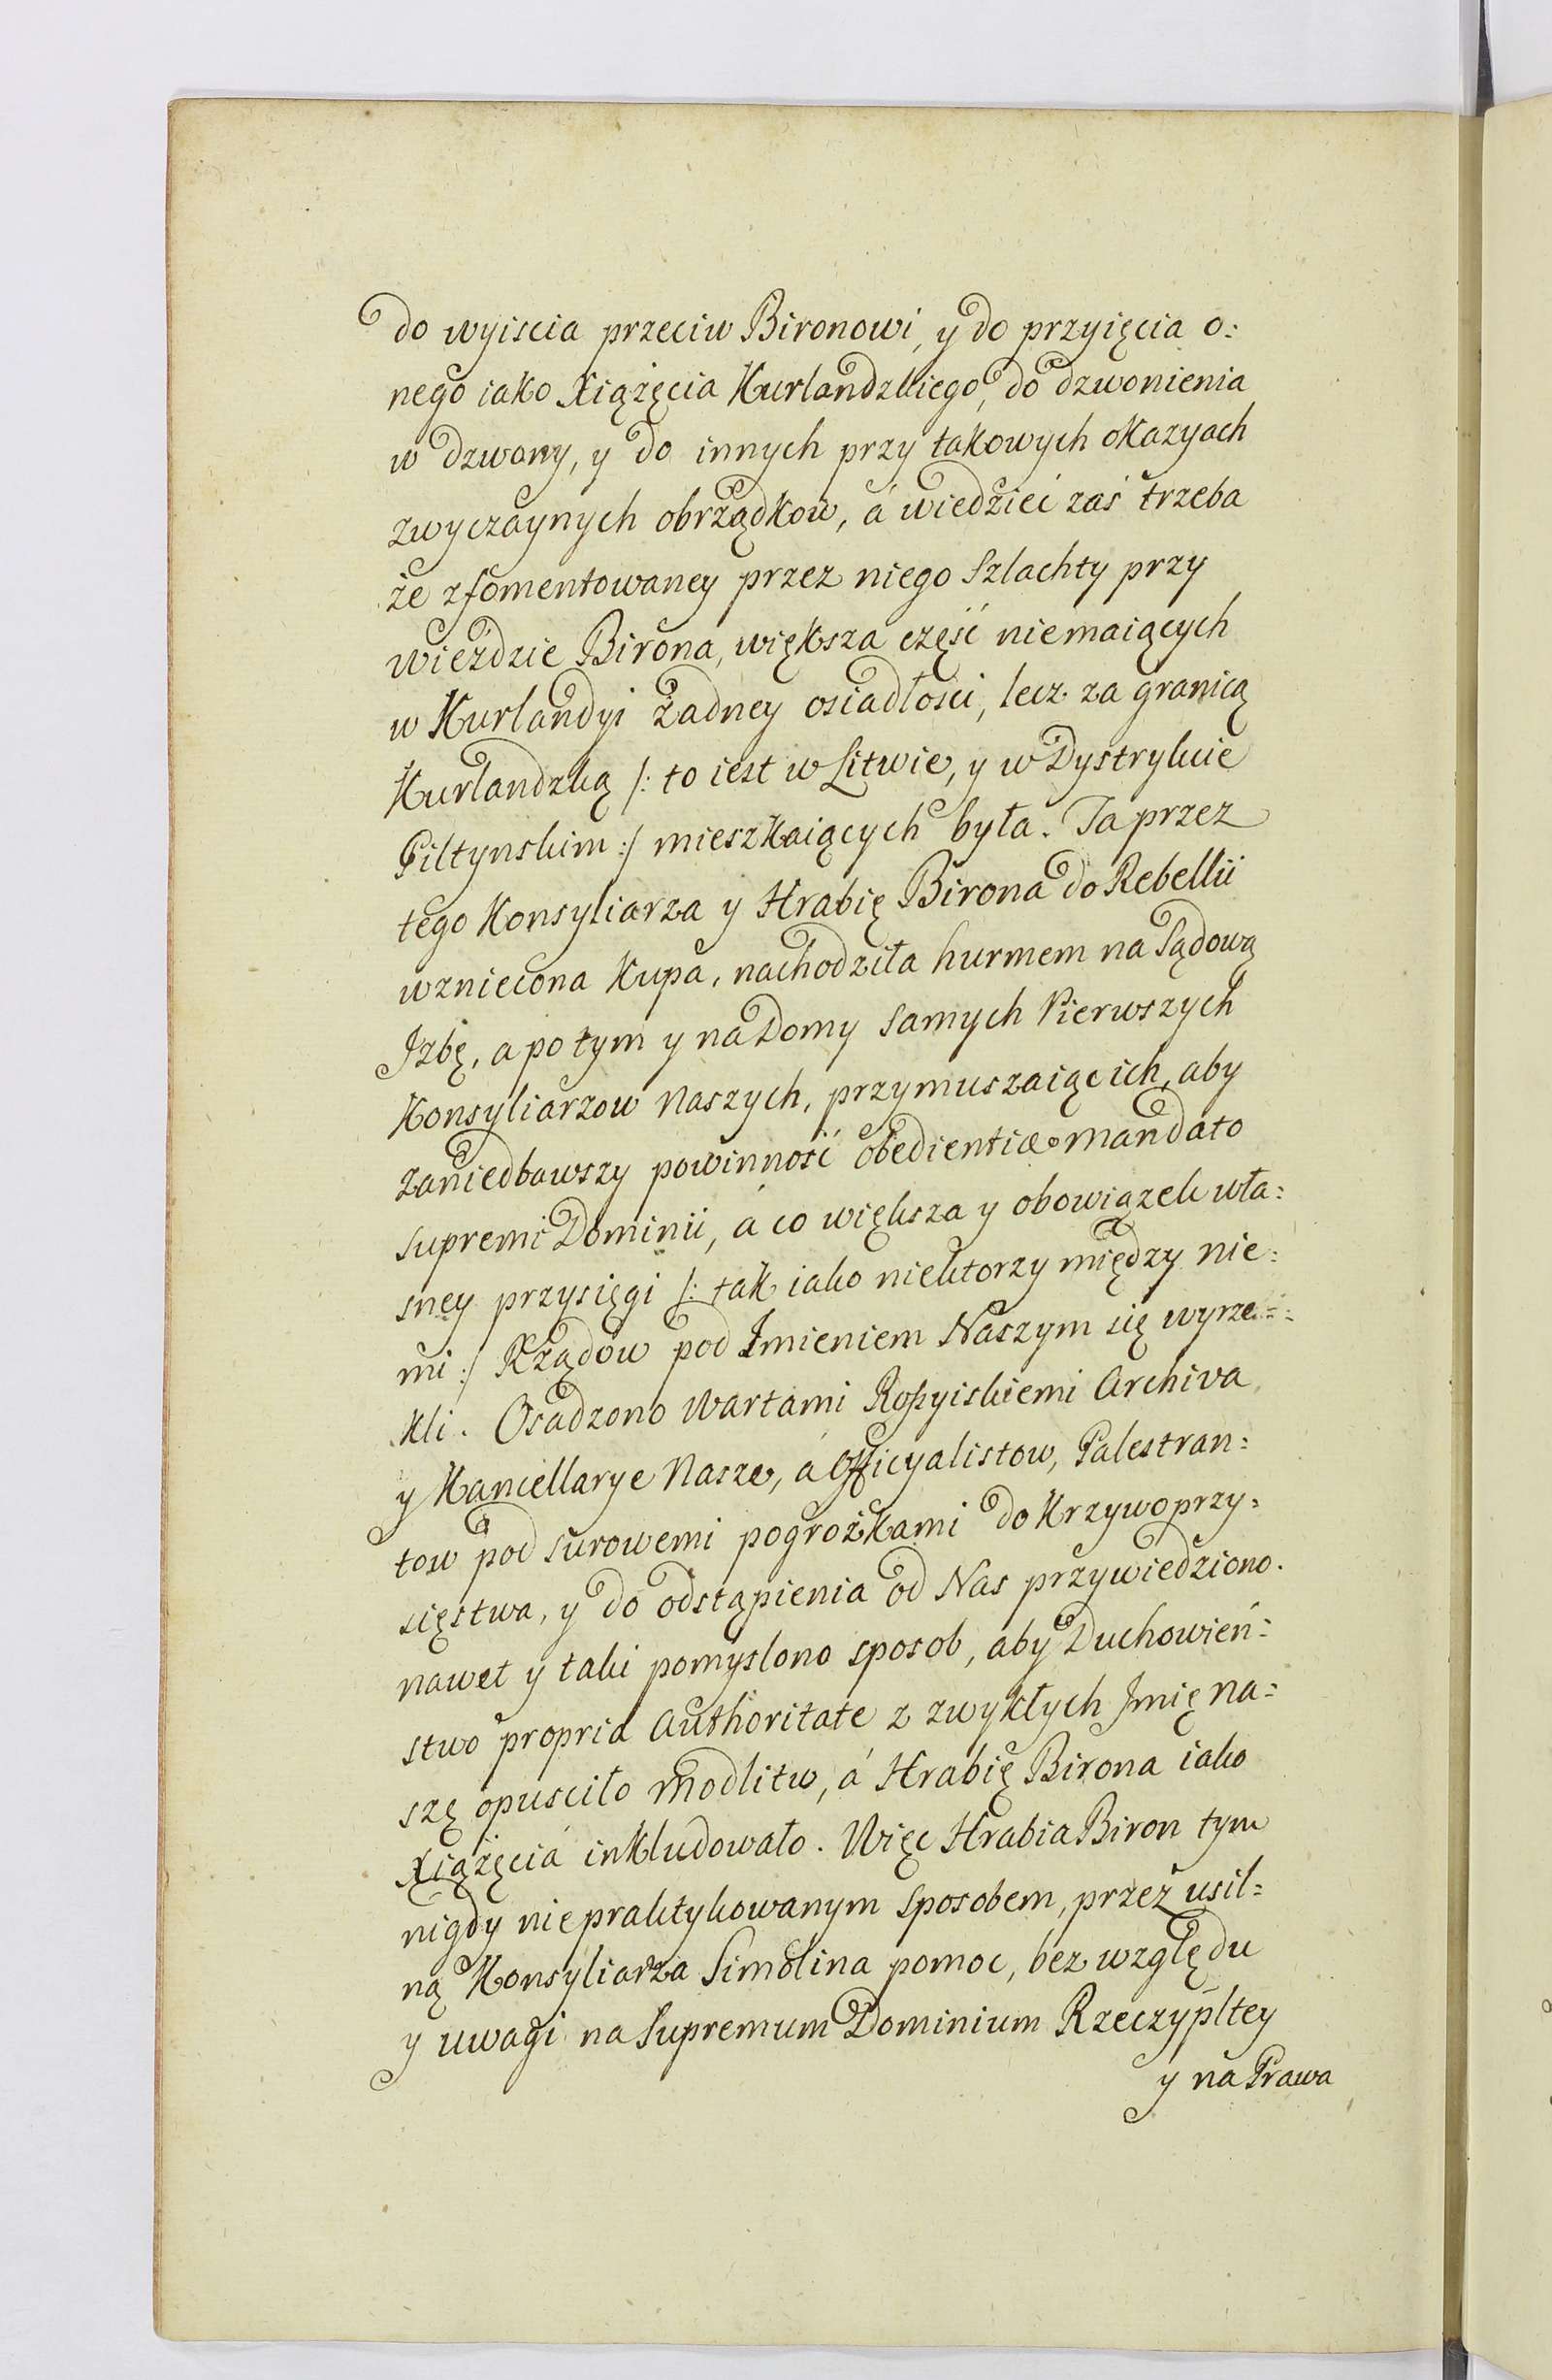 do wyiscia przeciw Bironowi, y do przyięcia o:
nego iako Xiążęcia Kurlandzkiego, do dzwonienia
w dzwony, y do innych przy takowych okazyach
zwyczaynych obrządkow, á wiedzieć zaś trzeba
że zfomentowaney przez niego Szlachty przy
wieździe Birona, większa część niemaiących
w Kurlandyi żadney osiadłości, lecz za granicą
Kurlandzką /: to iest w Litwie, y w Dystrykcie
Piltynskim :/ mieszkaiących była. Ta przez
tego Konsyliarza y Hrabię Birona do Rebellii
wzniecona Kupa, nachodziła hurmem na Sądową
Izbę, a po tym y na Domy samych Pierwszych
Konsyliarzow Naszych, przymuszaiąc ich, aby
zaniedbawszy powinność obedientiæ mandato
supremi Dominii, á co większa y obowiązek wła:
sney przysięgi /: tak iako niektorzy między nie:
mi :/ Rządow pod Imieniem Naszym się wyrze=
kli. Osadzono Wartami Roszyiskiemi Archiva
y Kancellarye Nasze, á Officyalistow, Palestran:
tow pod surowemi pogrożkami do Krzywoprzy:
sięstwa, y do odstąpienia od Nas przywiedziono.
nawet y taki pomyslono sposob, aby Duchowień:
stwo propria Authoritate z zwykłych Imię na:
szę opusciło modlitw, á Hrabię Birona iako
Xiążęcia inkludowało. Więc Hrabia Biron tym
nigdy niepraktykowanym sposobem, przez usil:
ną Konsyliarza Simolina pomoc, bez względu
y uwagi na Supremum Dominium Rzeczypltey
y na Prawa